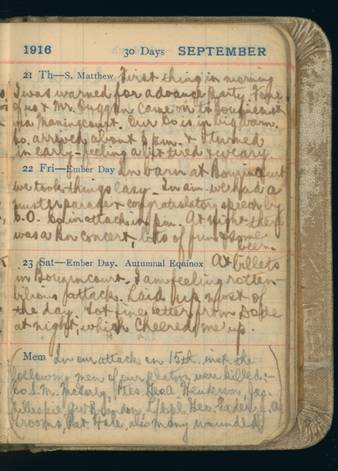 1916 30 Days SEPTEMBER
21 Th—S. Matthew First thing in morning
I was warned for advance party. Four
of us & Mr. Duggan came on to
via. Our Co is in big barn.
Co. arrived about 6 p.m. & I turned
in early – feeling a bit tired & weary
22 Fri—Ember Day In barn at
we took things easy. In a.m. we had a
muster parade & congratulatory speech by
C.O. in attack in p.m. At night there
was a Bn concert, lots of fun & some
beer.
23 Sat—Ember Day. Autumnal Equinox At billets
in. I am feeling rotten
bilious attack. Laid up most of
the day. Got fine letter from
at night, which cheered me up.
Mem In our attack on 15th inst the
following men of our platoon were killed:–
Co S.M., Ptes Geo. Henderson, Jas.
Gillespie, L/Cpl Geo.
, Pat Hale, also many wounded